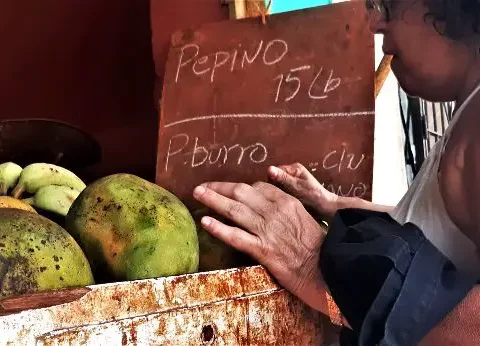 Pepino
15 Lb
P.burro c/u
uno